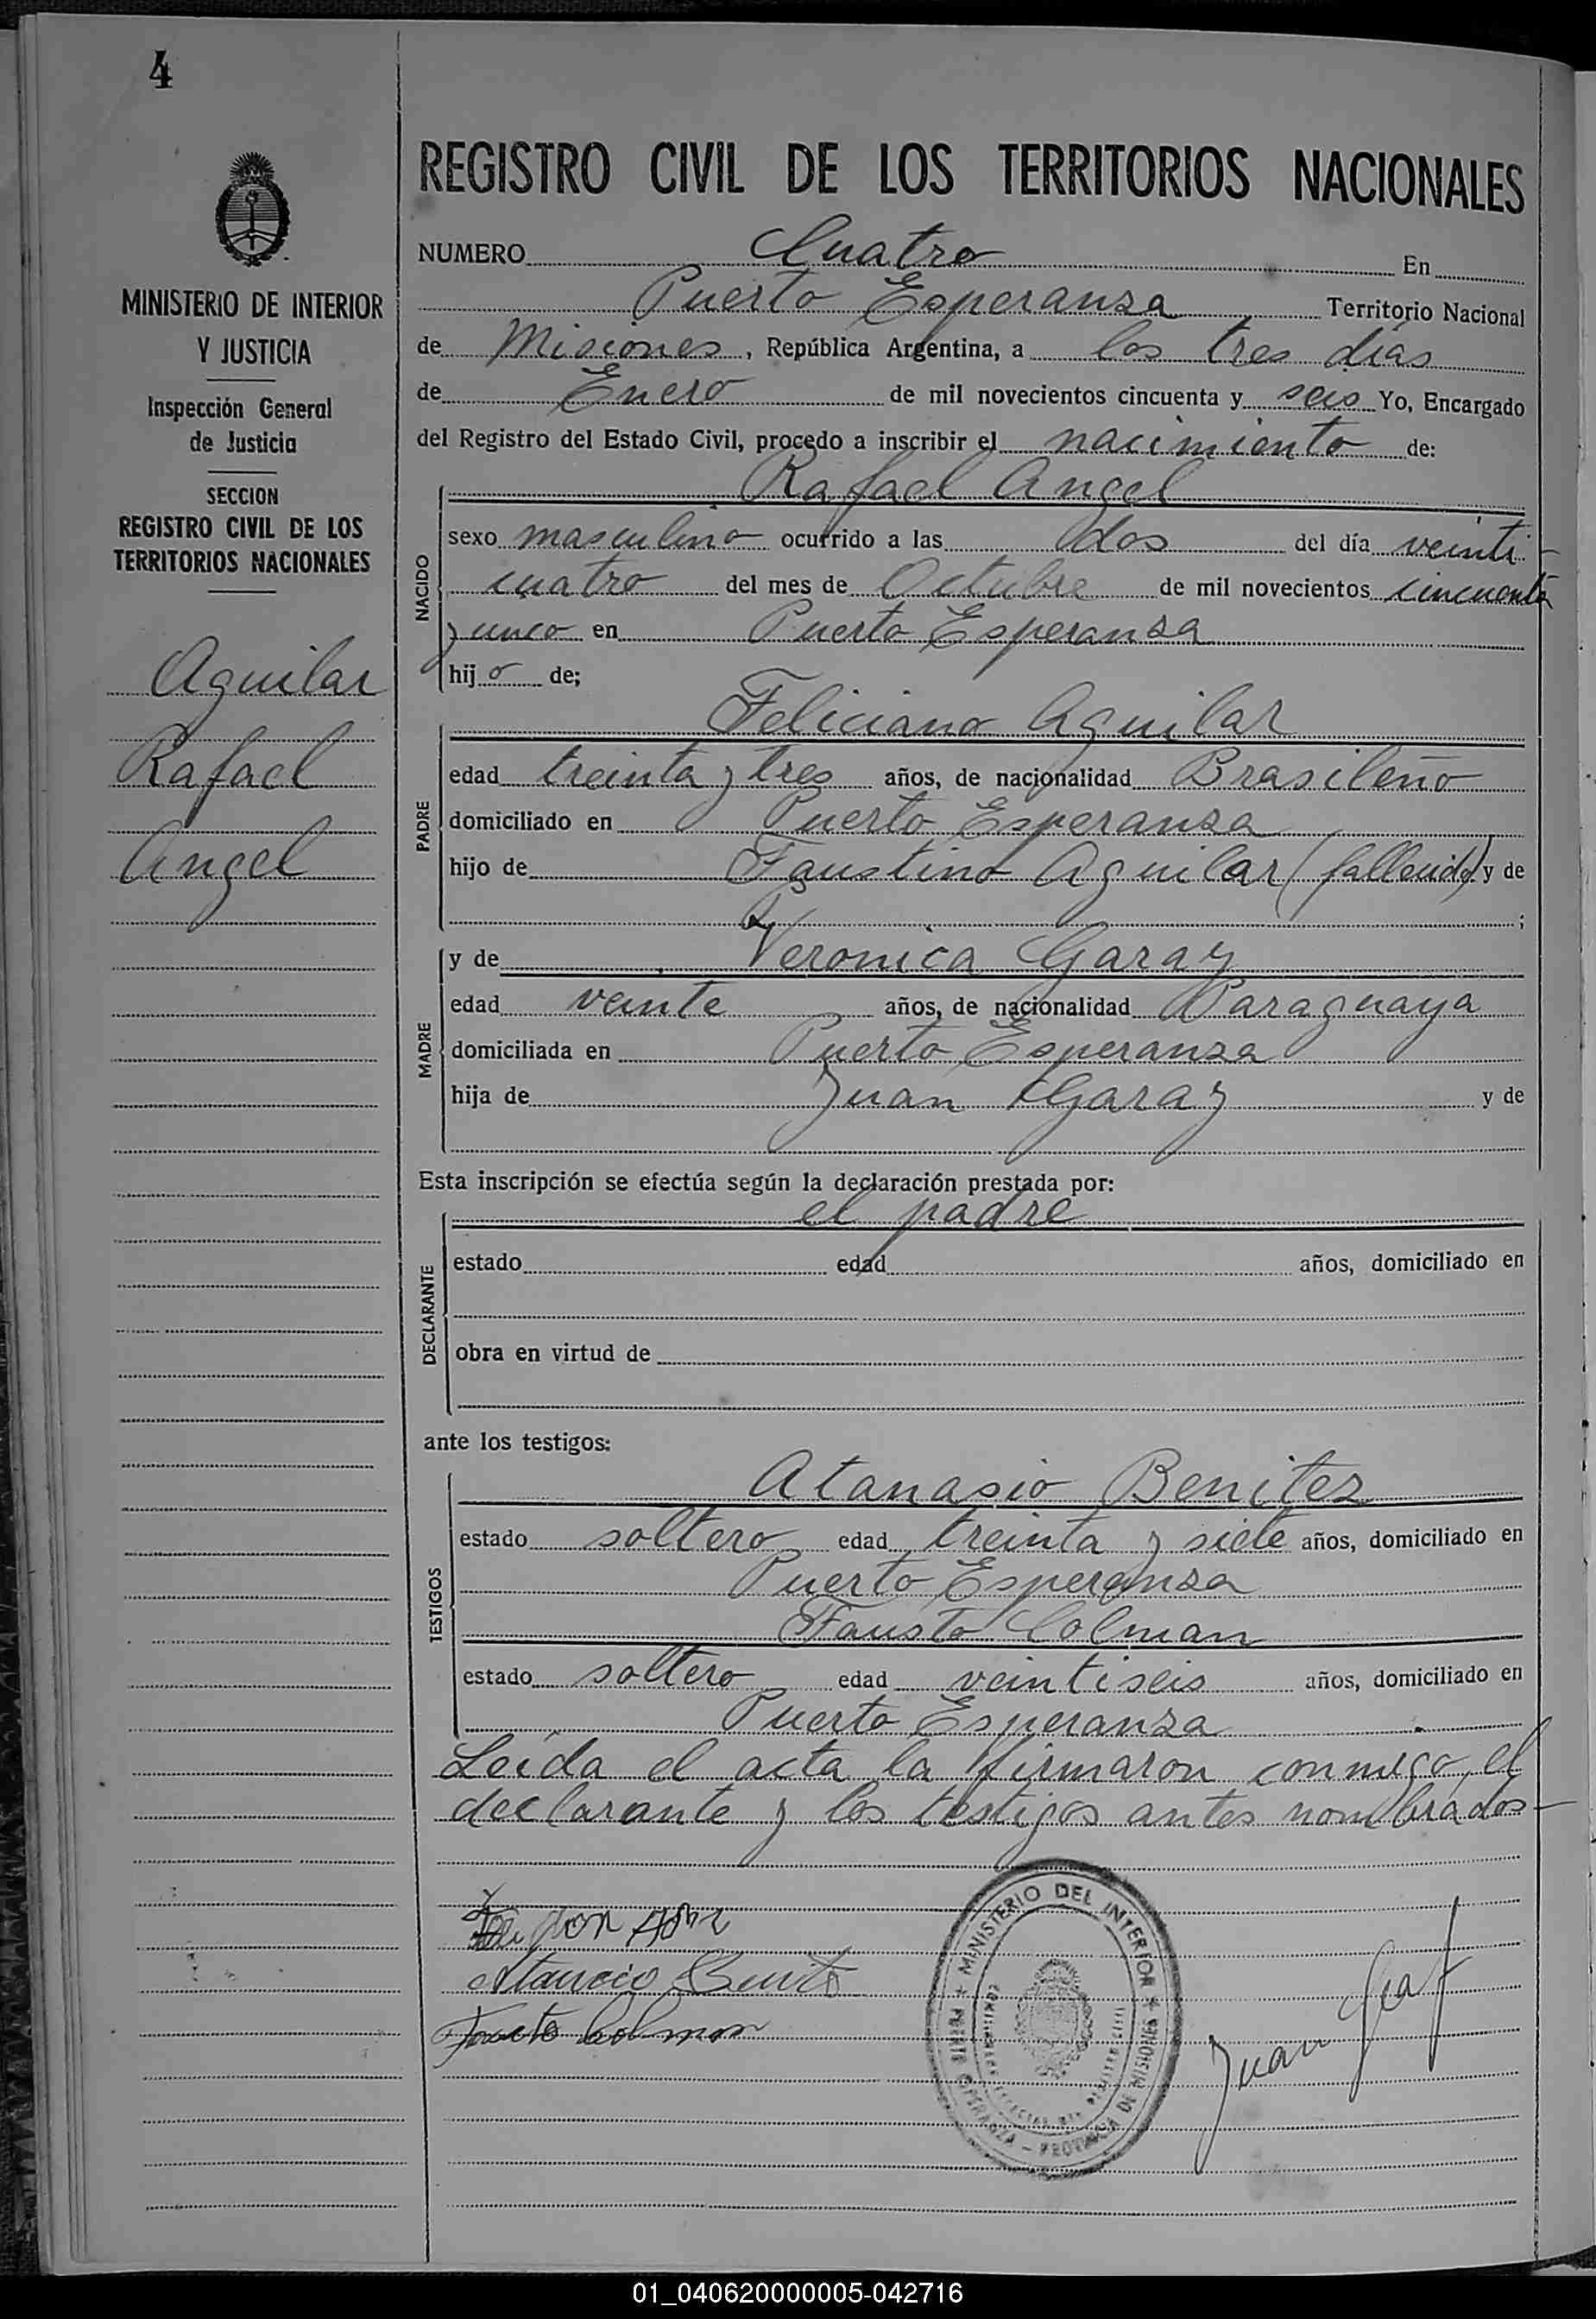 4
MINISTERIO DE INTERIOR
Y JUSTICIA
Inspección General
de Justicia
SECCION
REGISTRO CIVIL DE LOS
TERRITORIOS NACIONALES
Aguilar
Rafael
Angel
REGISTRO CIVIL DE LOS TERRITORIOS NACIONALES
NUMERO Cuatro En
Puerto Esperanza Territorio Nacional
de Misiones, República Argentina, a los tres días
de Enero de mil novecientos cincuenta y seis Yo, Encargado
del Registro del Estado Civil, procedo a inscribir el nacimiento de:
NACIDO
Rafael Angel
sexo masculino ocurrido a las dos del día veinti
cuatro del mes de Octubre de mil novecientos cincuenta
y cinco en Puerto Esperanza
hijo de;
PADRE
Feliciano Aguilar
edad treinta y tres años, de nacionalidad Brasileño
domiciliado en Puerto Esperanza
hijo de Faustino Aguilar (fallecido) y de
;
MADRE
y de Veronica Garay
edad veinte años, de nacionalidad Paraguaya
domiciliada en Puerto Esperanza
hija de Juan Garay y de
Esta inscripción se efectúa según la declaración prestada por:
DECLARANTE
el padre
estado edad años, domiciliado en
obra en virtud de
ante los testigos:
TESTIGOS
Atanasio Benitez
estado soltero edad treinta y siete años, domiciliado en
Puerto Esperanza
Fausto Colman
estado soltero edad veintiseis años, domiciliado en
Puerto Esperanza
Leída el acta la firmaron conmigo, el
declarante y los testigos antes nombrados
Fausto Colman
Juan
MINISTERIO DEL INTERIOR
PUERTO ESPERANZA - PROVINCIA DE MISIONES
01_040620000005-042716